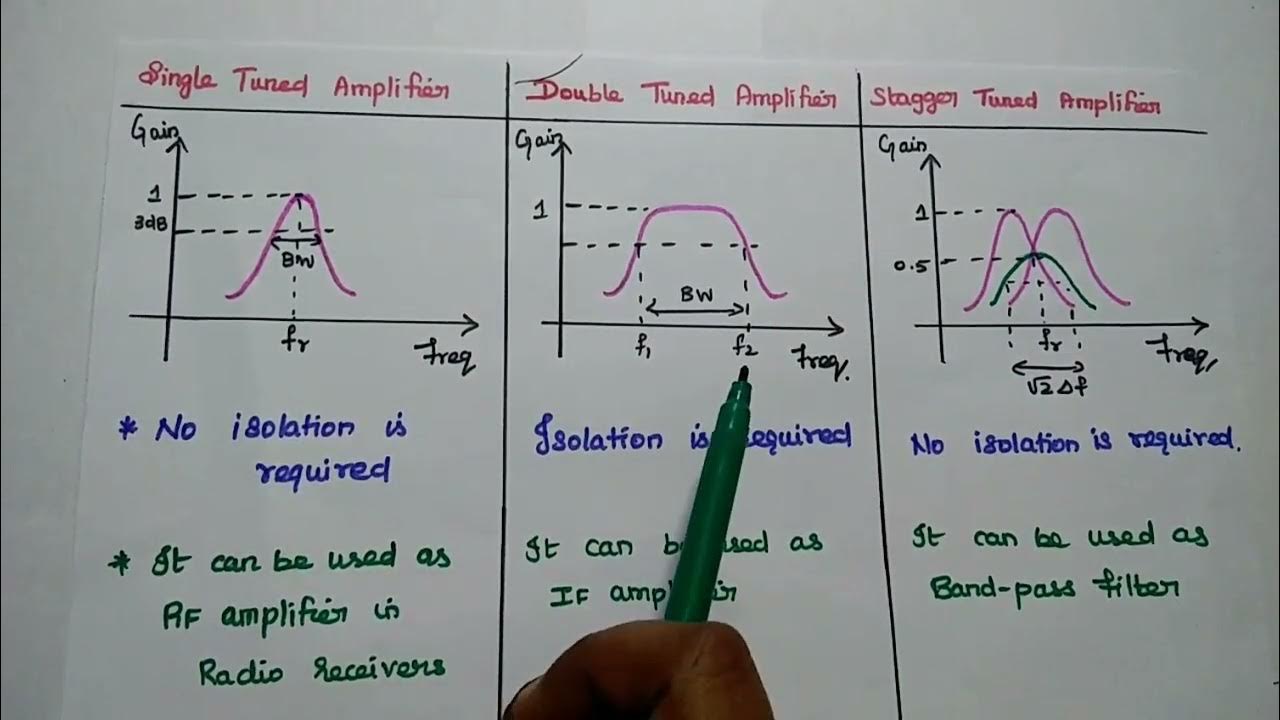 Single Tuned Amplifier
Double Tuned Amplifier
Stagger Tuned Amplifier
Gain
1
3dB
BW
fr
Freq
Gain
1
BW
f1
f2
Freq.
Gain
1
0.5
fr
Freq,
√2 Δf
* No isolation is
required
Isolation is required
No isolation is required.
* It can be used as
RF amplifier in
Radio receivers
It can be used as
IF amplifier
It can be used as
Band-pass filter